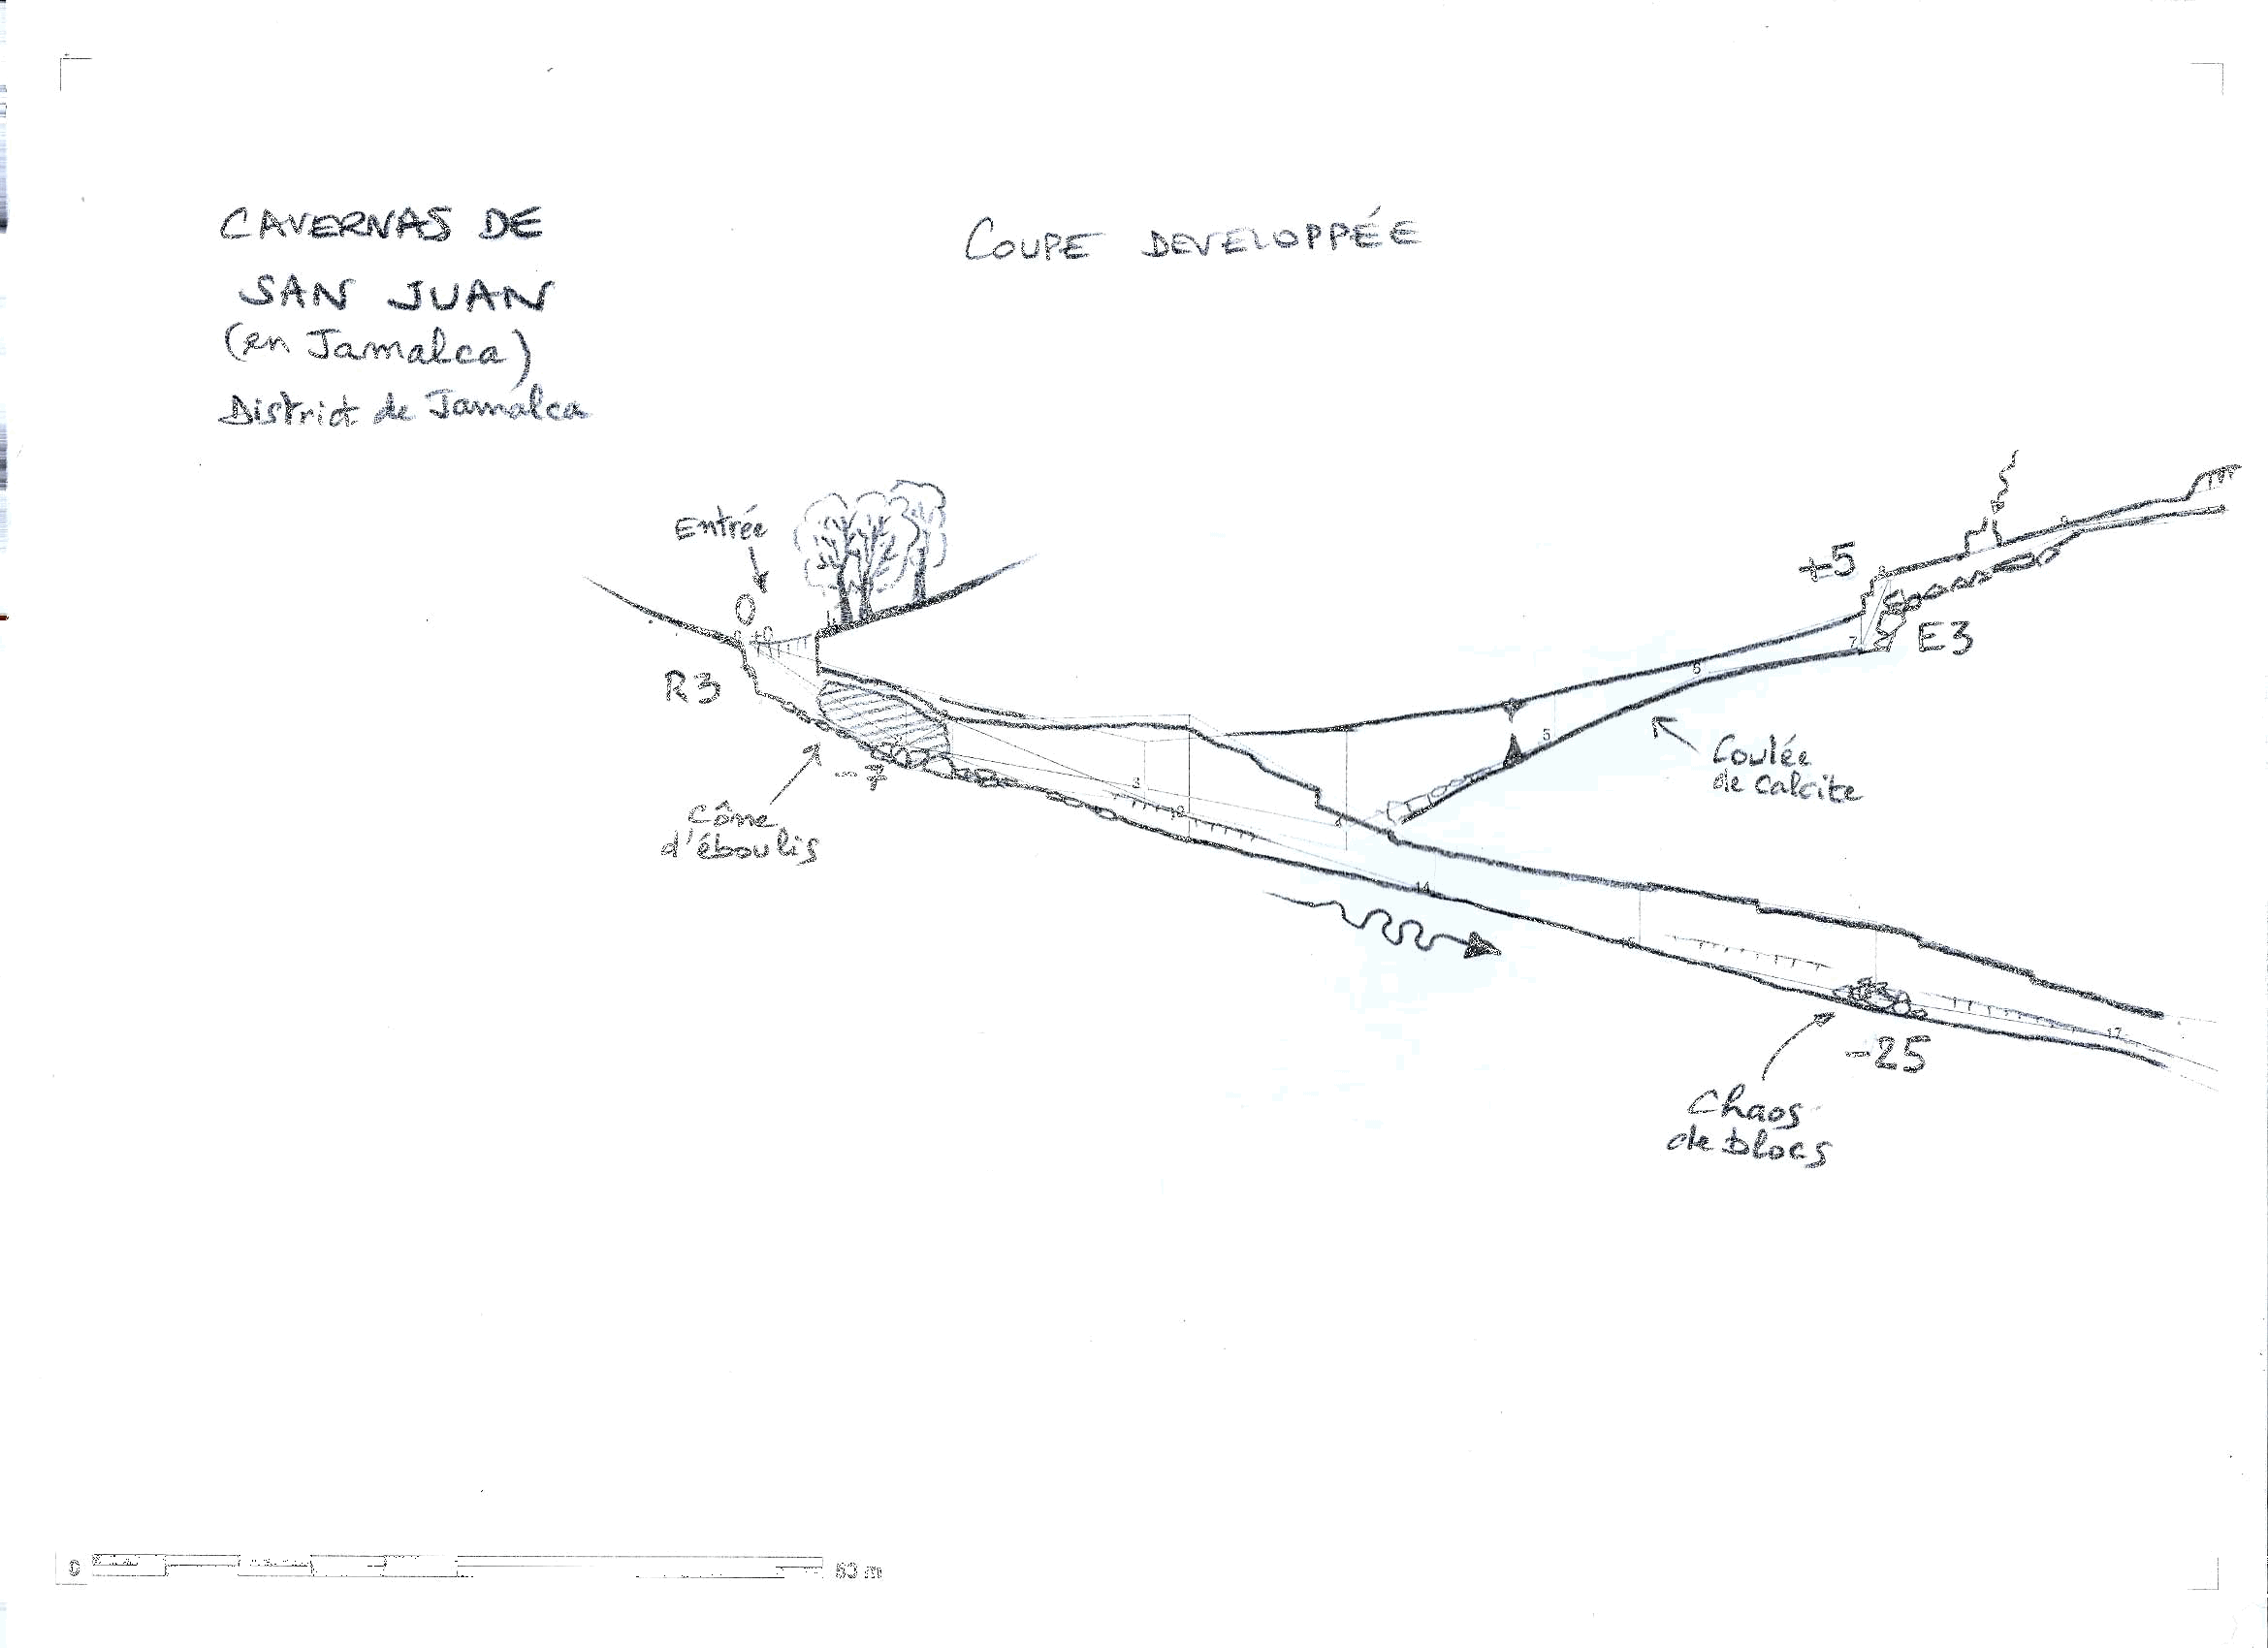 CAVERNAS DE
SAN JUAN
(en Jamalca)
District de Jamalca
COUPE DEVELOPPÉE
Entrée
0
R3
Cône
d'éboulis
-7
3
4
14
5
6
7
+5
E3
Coulée
de calcite
17
-25
Chaos
de blocs
0
m